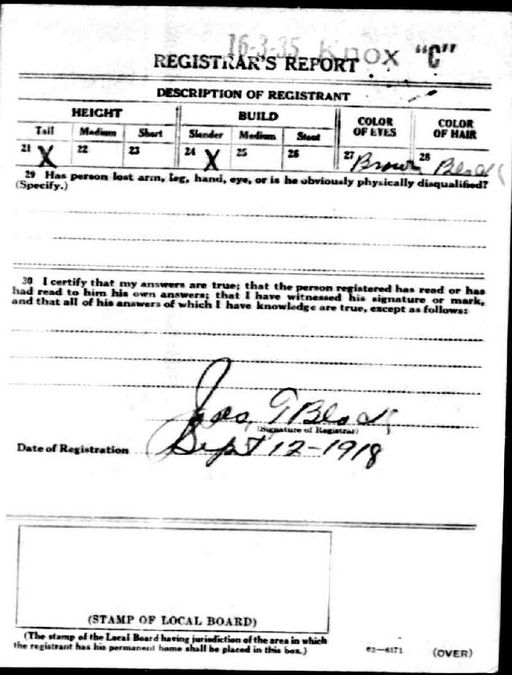 16-3-35 Knox "C"
REGISTRAR'S REPORT
DESCRIPTION OF REGISTRANT
HEIGHT BUILD COLOR OF EYES COLOR OF HAIR
Tall Medium Short Slender Medium Stout
21 X 22 23 24 X 25 26 27 Brown 28 Black
29 Has person lost arm, leg, hand, eye, or is he obviously physically disqualified?
(Specify.)
30 I certify that my answers are true; that the person registered has read or has
had read to him his own answers; that I have witnessed his signature or mark,
and that all of his answers of which I have knowledge are true, except as follows:
Jas. G Black
(Signature of Registrar)
Date of Registration Sept 12-1918
(STAMP OF LOCAL BOARD)
(The stamp of the Local Board having jurisdiction of the area in which
the registrant has his permanent home shall be placed in this box.)
(OVER)